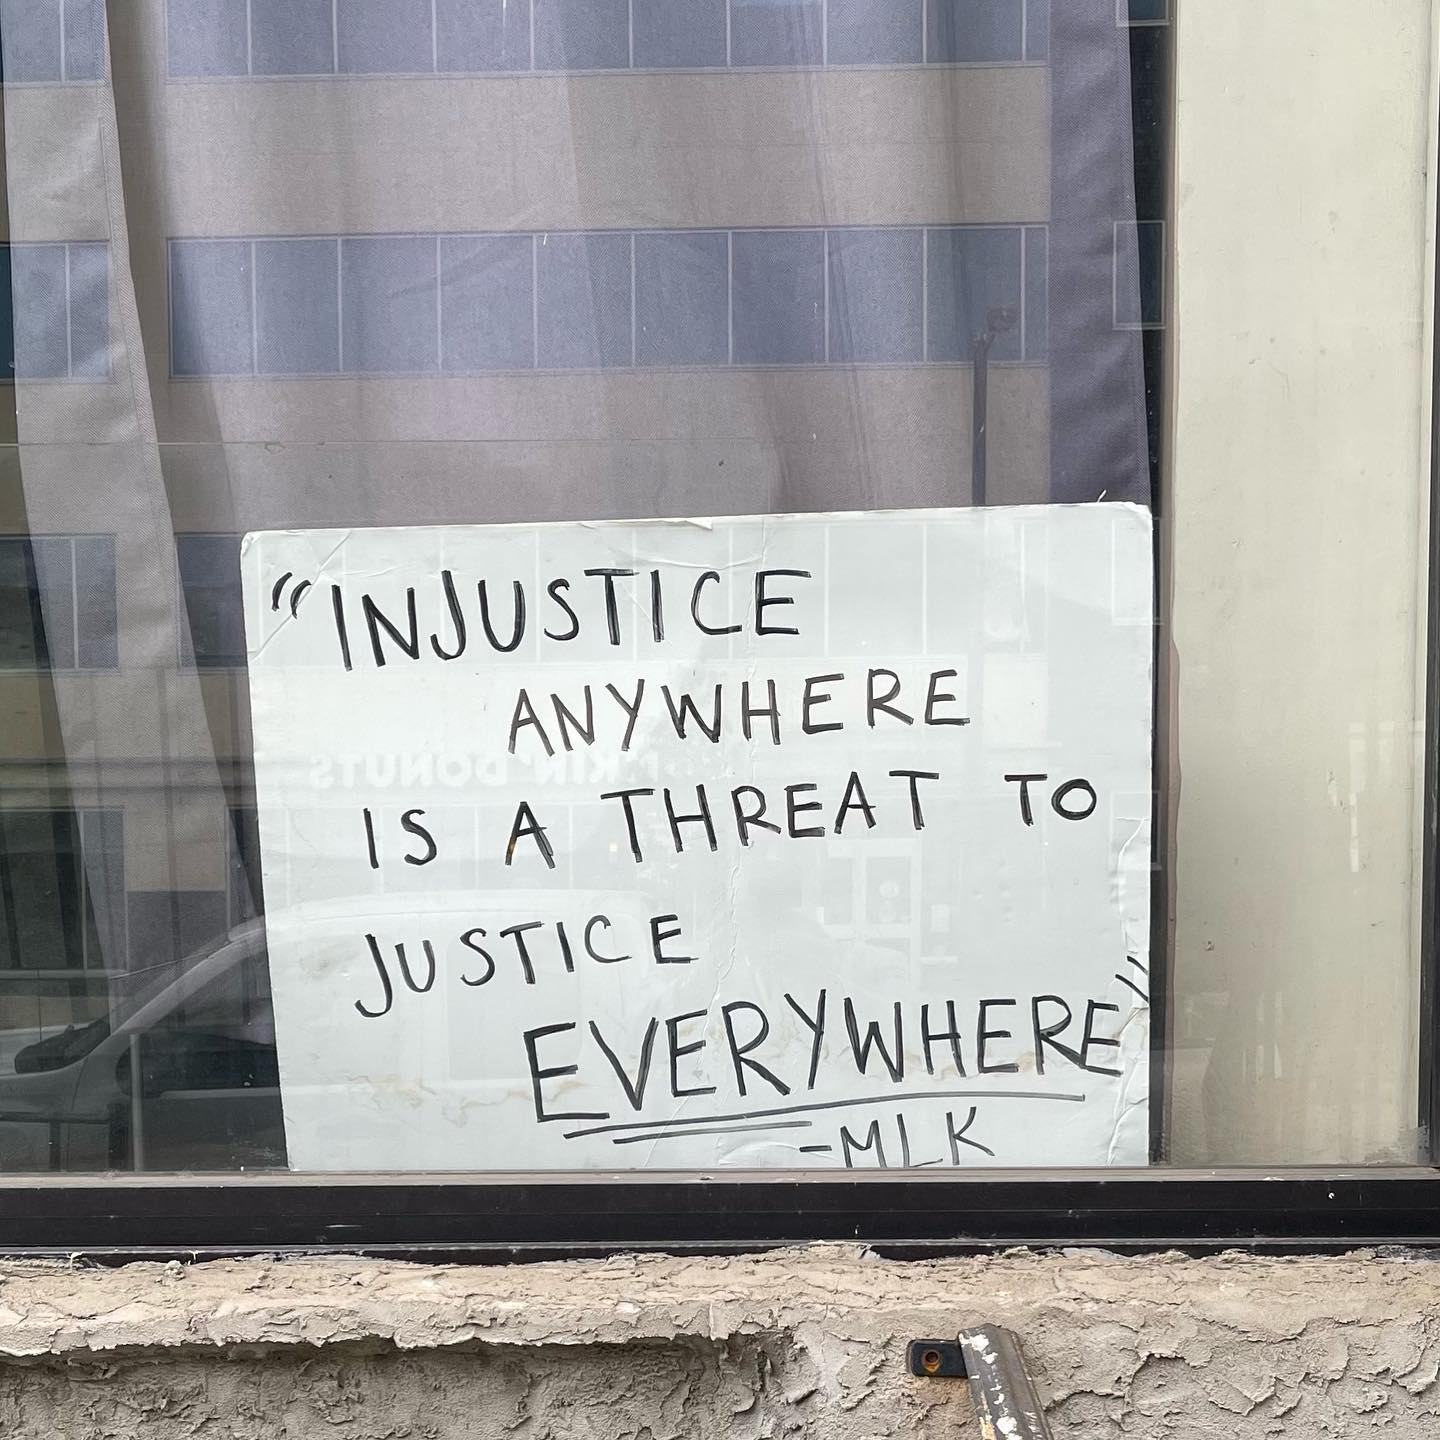 "INJUSTICE
ANYWHERE
IS A THREAT TO
JUSTICE
EVERYWHERE"
-MLK
KIN' DONUTS